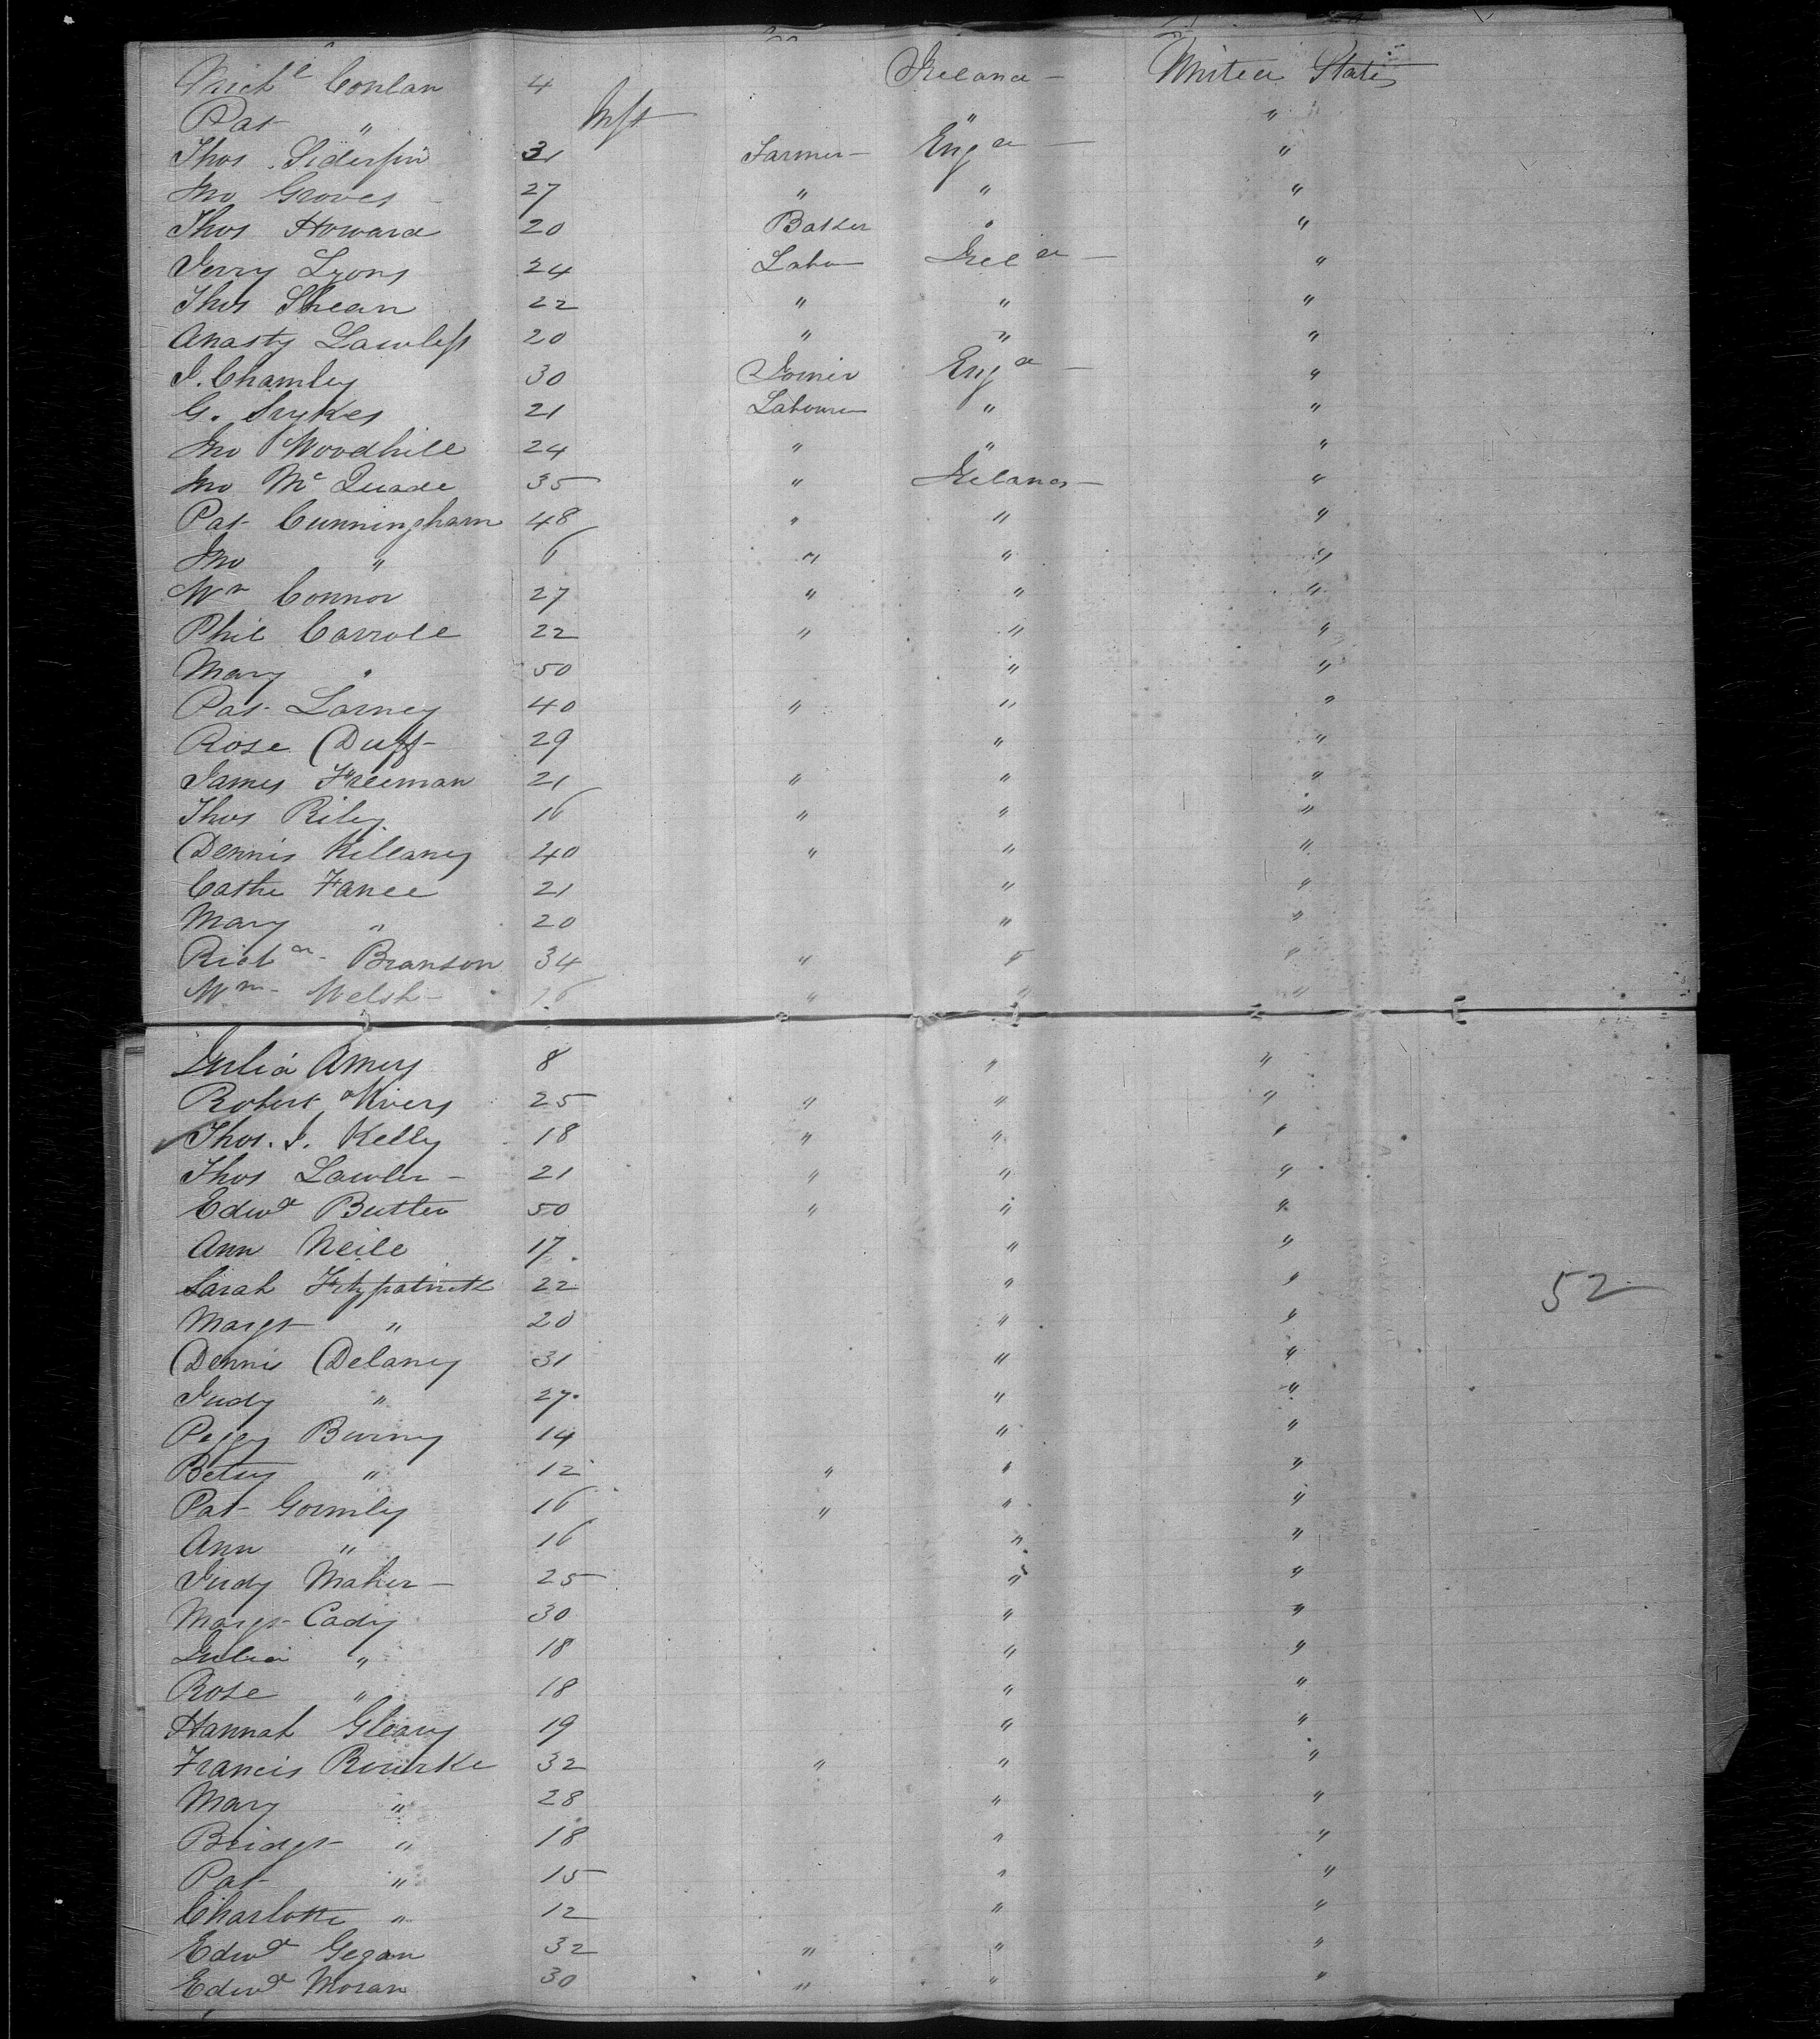 Mich<sup>l</sup> Conlan 4 Ireland — United States
Pat " Inft " "
Thos Siderfin 31 Farmer — Eng<sup>d</sup> — "
Jno Groves — 27 " " "
Thos Howard 20 Baker " "
Jerry Lyons 24 Labo— Irel<sup>d</sup> — "
Thos Shean 22 " " "
Anasty Lawless 20 " " "
J. Chamley 30 Joiner Eng<sup>d</sup> — "
G. Sykes 21 Labourer " "
Jno Woodhill 24 " " "
Jno McQuade 35 " Ireland — "
Pat Cunningham 48 " " "
Jno " 6 " " "
W<sup>m</sup> Connor 27 " " "
Phil Carroll 22 " " "
Mary " 50 " "
Pat Larney 40 " " "
Rose Duff 29 " "
James Freeman 21 " " "
Thos Riley 16 " " "
Dennis Killaney 40 " " "
Cathe Fanee 21 " "
Mary " 20 " "
Rich<sup>d</sup> Branson 34 " " "
W<sup>m</sup> Welsh — 16 " " "
Julia Amery 8 " "
Robert 25 " " "
Thos. J. Kelly 18 " " "
Thos Lawler — 21 " " "
Edw<sup>d</sup> Butler 50 " " "
Ann Neile 17 " "
Sarah Fitzpatrick 22 " " 52
Margt " 20 " "
Dennis Delaney 31 " "
Judy " 27 " "
Peggy Burny 14 " "
Betsy " 12 " " "
Pat Gormley 16 " " "
Ann " 16 " "
Judy Maher — 25 " "
Margt Cady 30 " "
Julia " 18 " "
Rose " 18 " "
Hannah Gleary 19 " "
Francis Rourke 32 " " "
Mary " 28 " "
Bridgt " 18 " "
Pat " 15 " "
Charlotte " 12 " "
Edw<sup>d</sup> Gegan 32 " " "
Edw<sup>d</sup> Moran 30 " " "